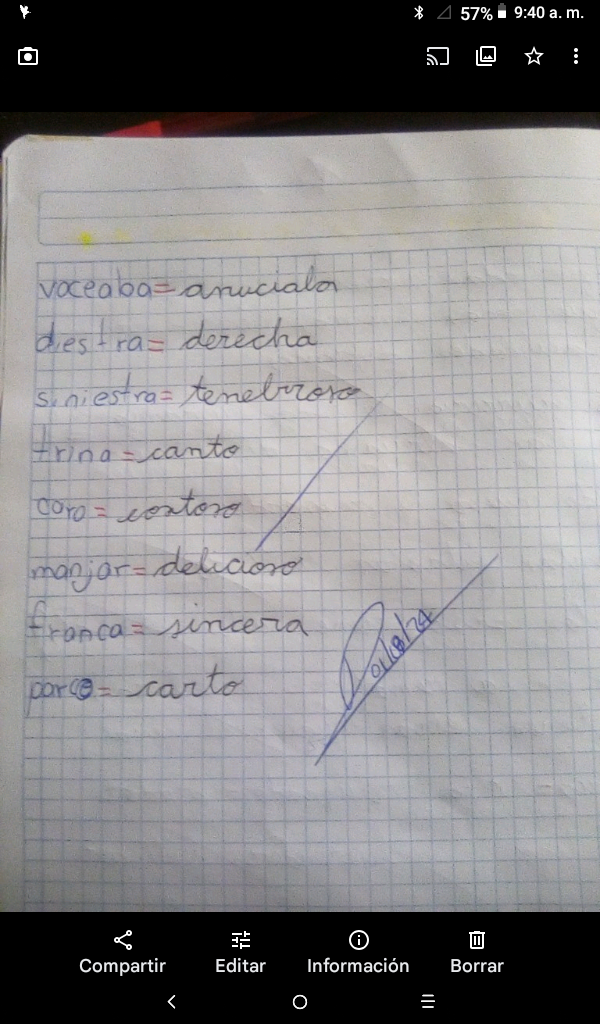 57% 9:40 a. m.
voceaba = anuciala
diestra = derecha
siniestra = tenebroso
trina = canto
caro = costoso
manjar = delicioso
franca = sincera
parco = carto
Compartir Editar Información Borrar